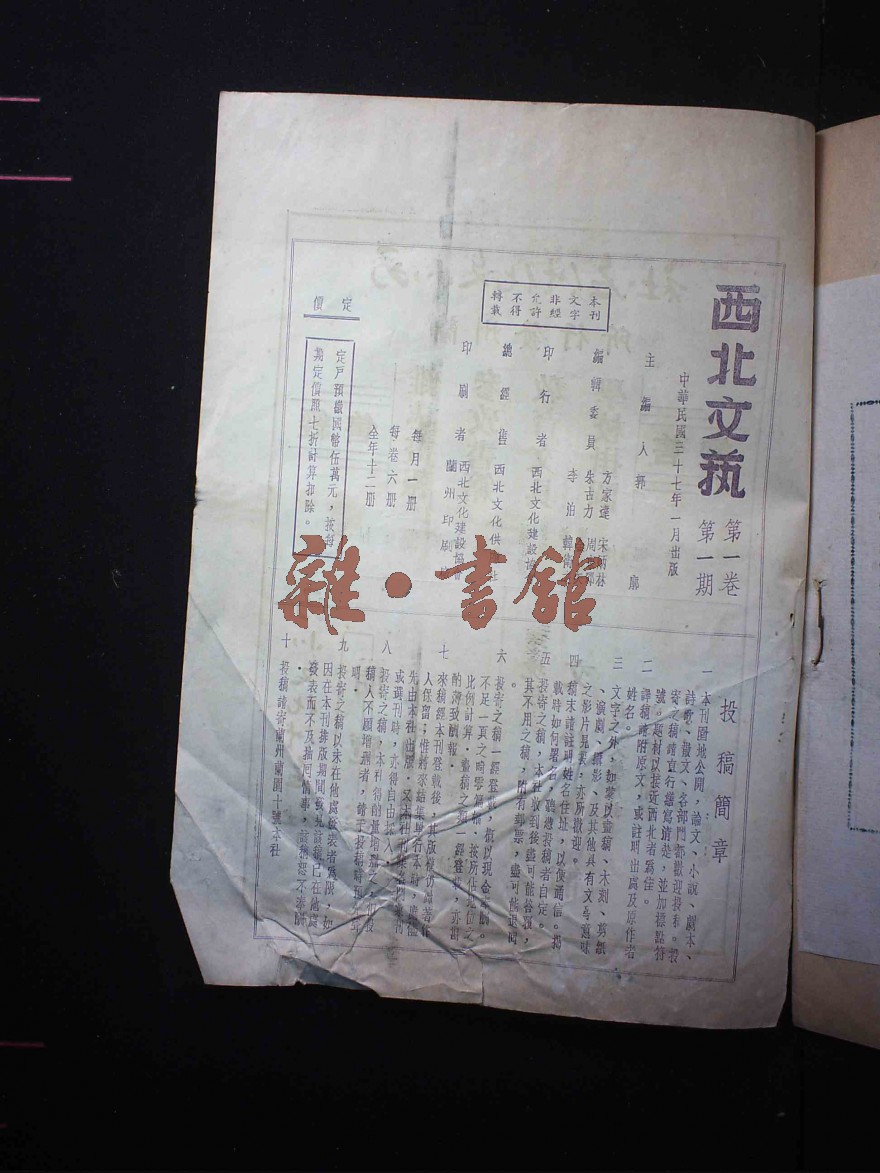 西北文执
第一卷
第一期
中華民國三十七年一月出版
主編人 郭 廓
編輯委員
方家達 宋
朱古力 周
李泊 韓
印行者 西北文化建設協
總經售 西北文化供 社
印刷者 西北文化建設協會
蘭州印刷
本刊
文字
非經
允許
不得
轉載
每月一册
每卷六册
全年十二册
定價
定戶預繳國幣伍萬元,按每
期定價照七折計算扣除。
雜·書館
投稿簡章
一 本刊園地公開,論文、小說、劇本、
詩歌、散文、各部門都歡迎投稿。投
寄之稿請直行繕寫清楚,並加標點符
號。題材以接近西北者爲佳。
二 譯稿請附原文,或註明出處及原作者
姓名。
三 文字之外,如蒙以畫稿、木刻、剪紙
、漫劇、攝影、及其他具有文藝意味
之影片見惠,亦所歡迎。
四 稿末請註明姓名住址,以便通信。揭
載時如何署名,聽憑投稿者自定。
五 投寄之稿,本社收到後盡可能答覆,
其不用之稿,附有郵票,盡可能退回
。
六 投寄之稿一經登載,概以現金
不足一頁之 按所佔地位之
比例計算.畫稿之類一經登載,亦當
酌薄致酬報.
七 來稿經本刊登載後,其版權仍歸著作
人保留;惟將來結集單行本時,應儘
先由本社出版.又本社
或選刊時,亦得自由採入.
八 投寄之稿,本社得酌量增删之.如投
稿人不願增删者,請于投稿時預先聲
明.
九 投寄之稿以未在他處發表者爲限,如
因在本刊排版期間發見該稿已在他處
發表而不及抽回情事,該稿恕不奉酬
.
十 投稿請寄蘭州蘭園十號本社